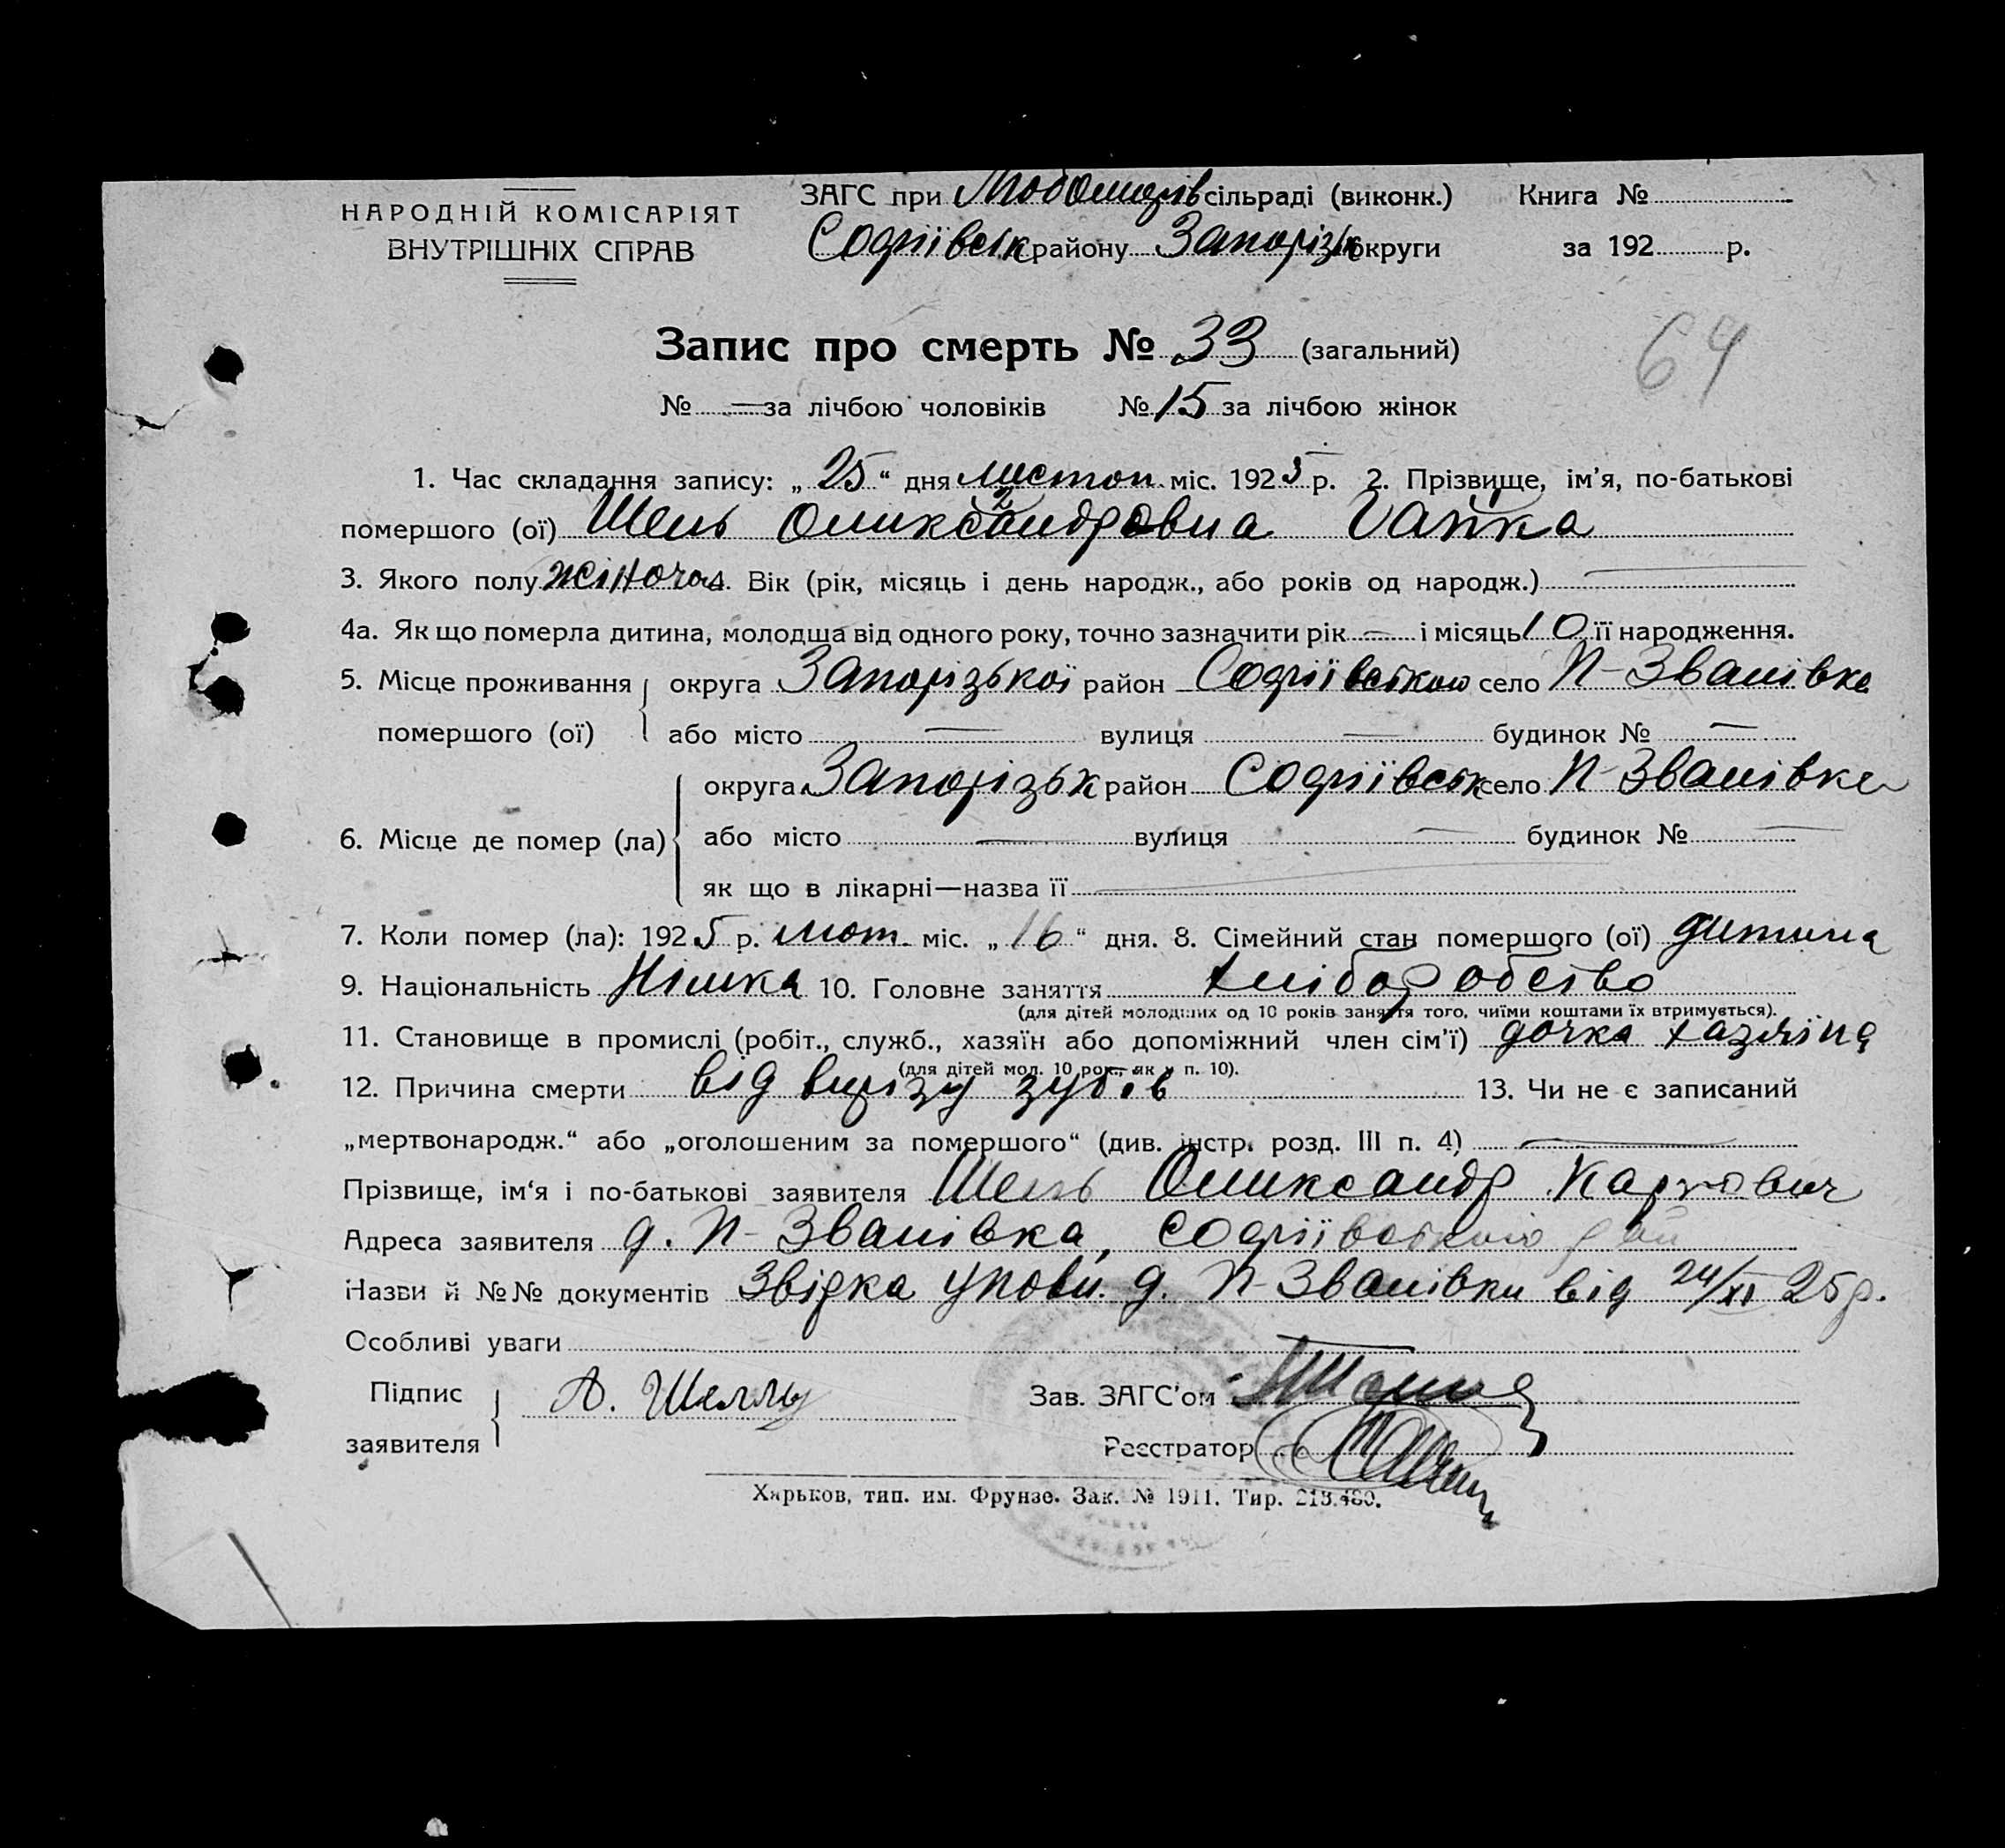 НАРОДНІЙ КОМІСАРІЯТ
ВНУТРІШНІХ СПРАВ
ЗАГС при сільраді (виконк.) Книга №
Софіївськ району Запорізьк округи за 192 р.
Запис про смерть № 33 (загальний)
64
№ — за лічбою чоловіків № 15 за лічбою жінок
1. Час складання запису: „ 25 “ дня листоп. міс. 1925 р. 2. Прізвище, ім'я, по-батькові
помершого (ої) Шель Олександровна
3. Якого полу жіноча 4. Вік (рік, місяць і день народж., або років од народж.) —
4а. Як що померла дитина, молодша від одного року, точно зазначити рік — і місяць 10 її народження.
5. Місце проживання помершого (ої) округа Запорізької район Софіївського село П-Званівка
або місто — вулиця — будинок № —
6. Місце де помер (ла) округа Запорізьк район Софіївськ село П-Званівка
або місто — вулиця — будинок № —
як що в лікарні—назва її —
7. Коли помер (ла): 1925 р. лют. міс. „ 16 “ дня. 8. Сімейний стан помершого (ої) дитина
9. Національність Німка 10. Головне заняття хліборобство
(для дітей молодших од 10 років заняття того, чиїми коштами їх втримується).
11. Становище в промислі (робіт., служб., хазяїн або допоміжний член сім'ї) дочка хазяїна
(для дітей мол. 10 рок., як у п. 10).
12. Причина смерти від вирізу зубів 13. Чи не є записаний
„мертвонародж.“ або „оголошеним за помершого“ (див. інстр. розд. III п. 4) —
Прізвище, ім'я і по-батькові заявителя Шель Олександр Карлович
Адреса заявителя д. П-Званівка, Софіївського рай
Назви й №№ документів Звідка упов. д. П-Званівки від 24/XI 25 р.
Особливі уваги —
Підпис заявителя А. Шелль Зав. ЗАГС'ом
Реєстратор
Харьков, тип. им. Фрунзе. Зак. № 1911. Тир. 213.480.